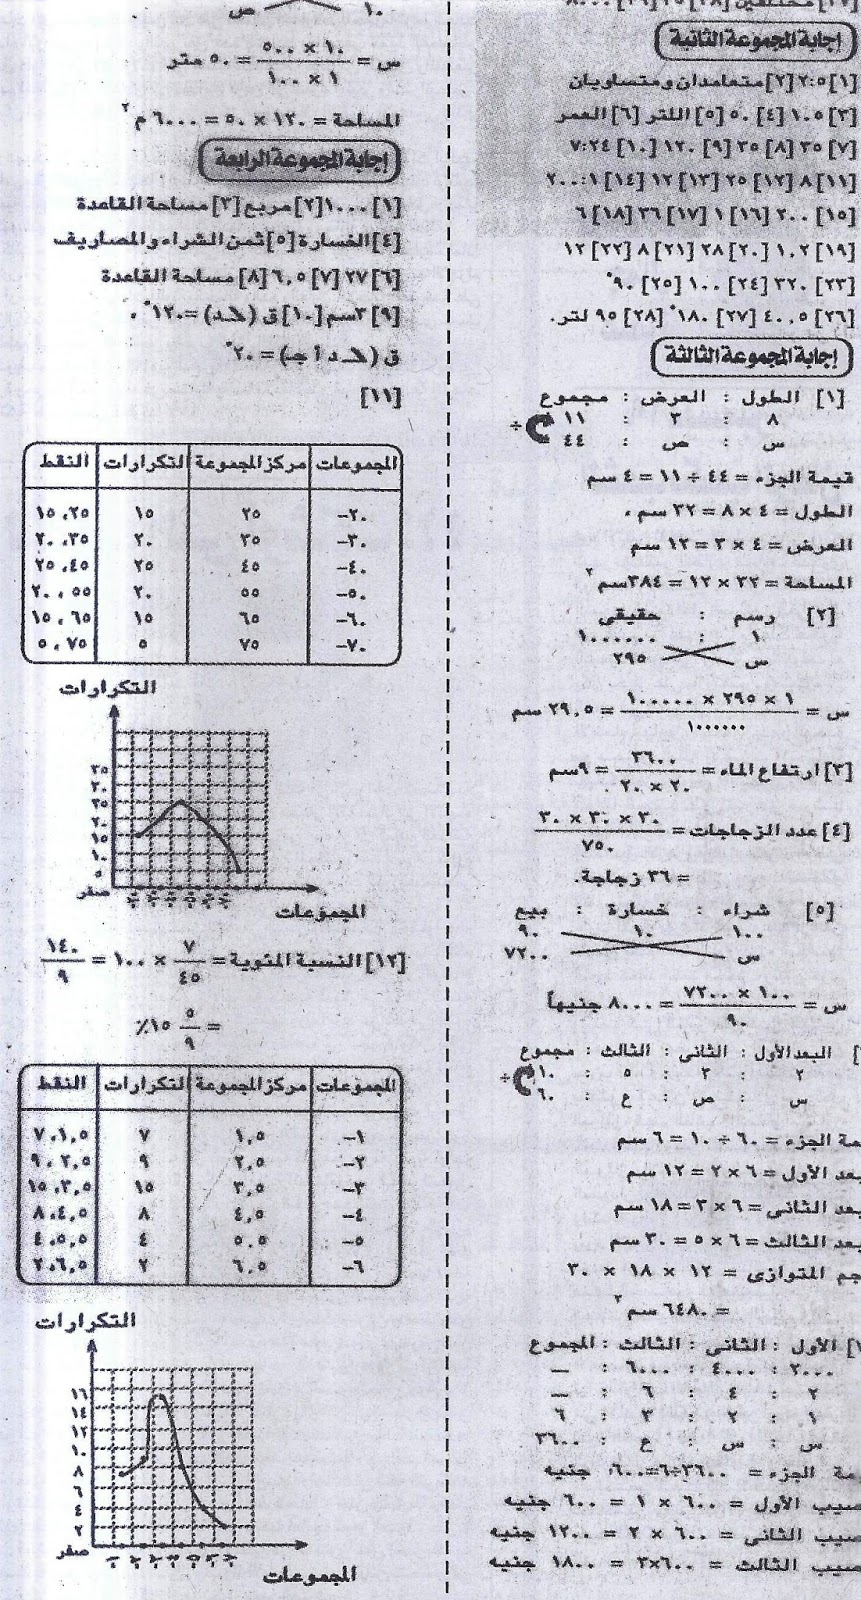 إجابة المجموعة الثانية
[١] ٢:٥ [٢] متعامدان ومتساويان
[٣] ١.٥ [٤] ٥٠ [٥] اللتر [٦] العمر
[٧] ٣٥ [٨] ٢٥ [٩] ١٢٠ [١٠] ٧:٢٤
[١١] ٨ [١٢] ٢٥ [١٣] ١٢ [١٤] ٢٠٠:١
[١٥] ٢٠٠ [١٦] ١ [١٧] ٣٦ [١٨] ٦
[١٩] ١.٢ [٢٠] ٢٨ [٢١] ٨ [٢٢] ١٢
[٢٣] ٣٢٠ [٢٤] ١٠٠ [٢٥] ٩٠°
[٢٦] ٤٠,٥ [٢٧] ١٨٠° [٢٨] ٩٥ لتر.
إجابة المجموعة الثالثة
[١] الطول : العرض : مجموع
٨ : ٣ : ١١
س : ص : ٤٤ ÷
قيمة الجزء = ٤٤ ÷ ١١ = ٤ سم
الطول = ٤ × ٨ = ٣٢ سم ،
العرض = ٤ × ٣ = ١٢ سم
المساحة = ٣٢ × ١٢ = ٣٨٤سم٢
[٢] رسم : حقيقى
١ : ١٠٠٠٠٠٠
س ٢٩٥
س = ١ × ٢٩٥ × ١٠٠٠٠٠ / ١٠٠٠٠٠٠ = ٢٩,٥ سم
[٣] ارتفاع الماء = ٣٦٠٠ / ٢٠ × ٢٠ = ٩سم
[٤] عدد الزجاجات = ٣٠ × ٣٠ × ٣٠ / ٧٥٠
= ٣٦ زجاجة.
[٥] شراء : خسارة : بيع
١٠٠ ١٠ ٩٠
س ٧٢٠٠
س = ١٠٠ × ٧٢٠٠ / ٩٠ = ٨٠٠٠ جنيهاً
البعد الأول : الثانى : الثالث : مجموع
٢ : ٣ : ٥ : ١٠
س : ص : ع : ٦٠ ÷
مة الجزء = ٦٠ ÷ ١٠ = ٦ سم
بعد الأول = ٦ × ٢ = ١٢ سم
بعد الثانى = ٦ × ٣ = ١٨ سم
بعد الثالث = ٦ × ٥ = ٣٠ سم
جم المتوازى = ١٢ × ١٨ × ٣٠
= ٦٤٨٠ سم٣
الأول : الثانى : الثالث : المجموع
٢٠٠٠ : ٤٠٠٠ : ٦٠٠٠ : —
٢ : ٤ : ٦ : —
١ : ٢ : ٣ : ٦
س : س : ع : ٣٦٠٠
مة الجزء = ٣٦٠٠÷٦=٦٠٠ جنيه
صيب الأول = ٦٠٠ × ١ = ٦٠٠ جنيه
صيب الثانى = ٦٠٠ × ٢ = ١٢٠٠ جنيه
صيب الثالث = ٦٠٠×٣ = ١٨٠٠ جنيه
١٠ ص
س = ١٠ × ٥٠٠ / ١ × ١٠٠ = ٥٠ متر
المساحة = ١٢٠ × ٥٠ = ٦٠٠٠ م٢
إجابة المجموعة الرابعة
[١] ١٠٠٠ [٢] مربع [٣] مساحة القاعدة
[٤] الخسارة [٥] ثمن الشراء والمصاريف
[٦] ٢٧ [٧] ٦,٥ [٨] مساحة القاعدة
[٩] ٣سم [١٠] ق (∠ د) = ١٢٠° ،
ق (∠ د أ جـ) = ٢٠°
[١١]
المجموعات مركز المجموعة التكرارات النقط
٢٠– ٢٥ ١٥ ٢٥، ١٥
٣٠– ٣٥ ٢٠ ٣٥، ٢٠
٤٠– ٤٥ ٢٥ ٤٥، ٢٥
٥٠– ٥٥ ٢٠ ٥٥، ٢٠
٦٠– ٦٥ ١٥ ٦٥، ١٥
٧٠– ٧٥ ٥ ٧٥، ٥
التكرارات
٣٥
٣٠
٢٥
٢٠
١٥
١٠
٥
صفر
المجموعات
[١٢] النسبة المئوية = ٧ / ٤٥ × ١٠٠ = ١٤٠ / ٩
= ٥ / ٩ ١٥٪
المجموعات مركز المجموعة التكرارات النقط
١– ١,٥ ٧ ١,٥، ٧
٢– ٢,٥ ٩ ٢,٥، ٩
٣– ٣,٥ ١٥ ٣,٥، ١٥
٤– ٤,٥ ٨ ٤,٥، ٨
٥– ٥.٥ ٤ ٥,٥، ٤
٦– ٦,٥ ٢ ٦,٥، ٢
التكرارات
١٦
١٤
١٢
١٠
٨
٦
٤
٢
صفر
المجموعات